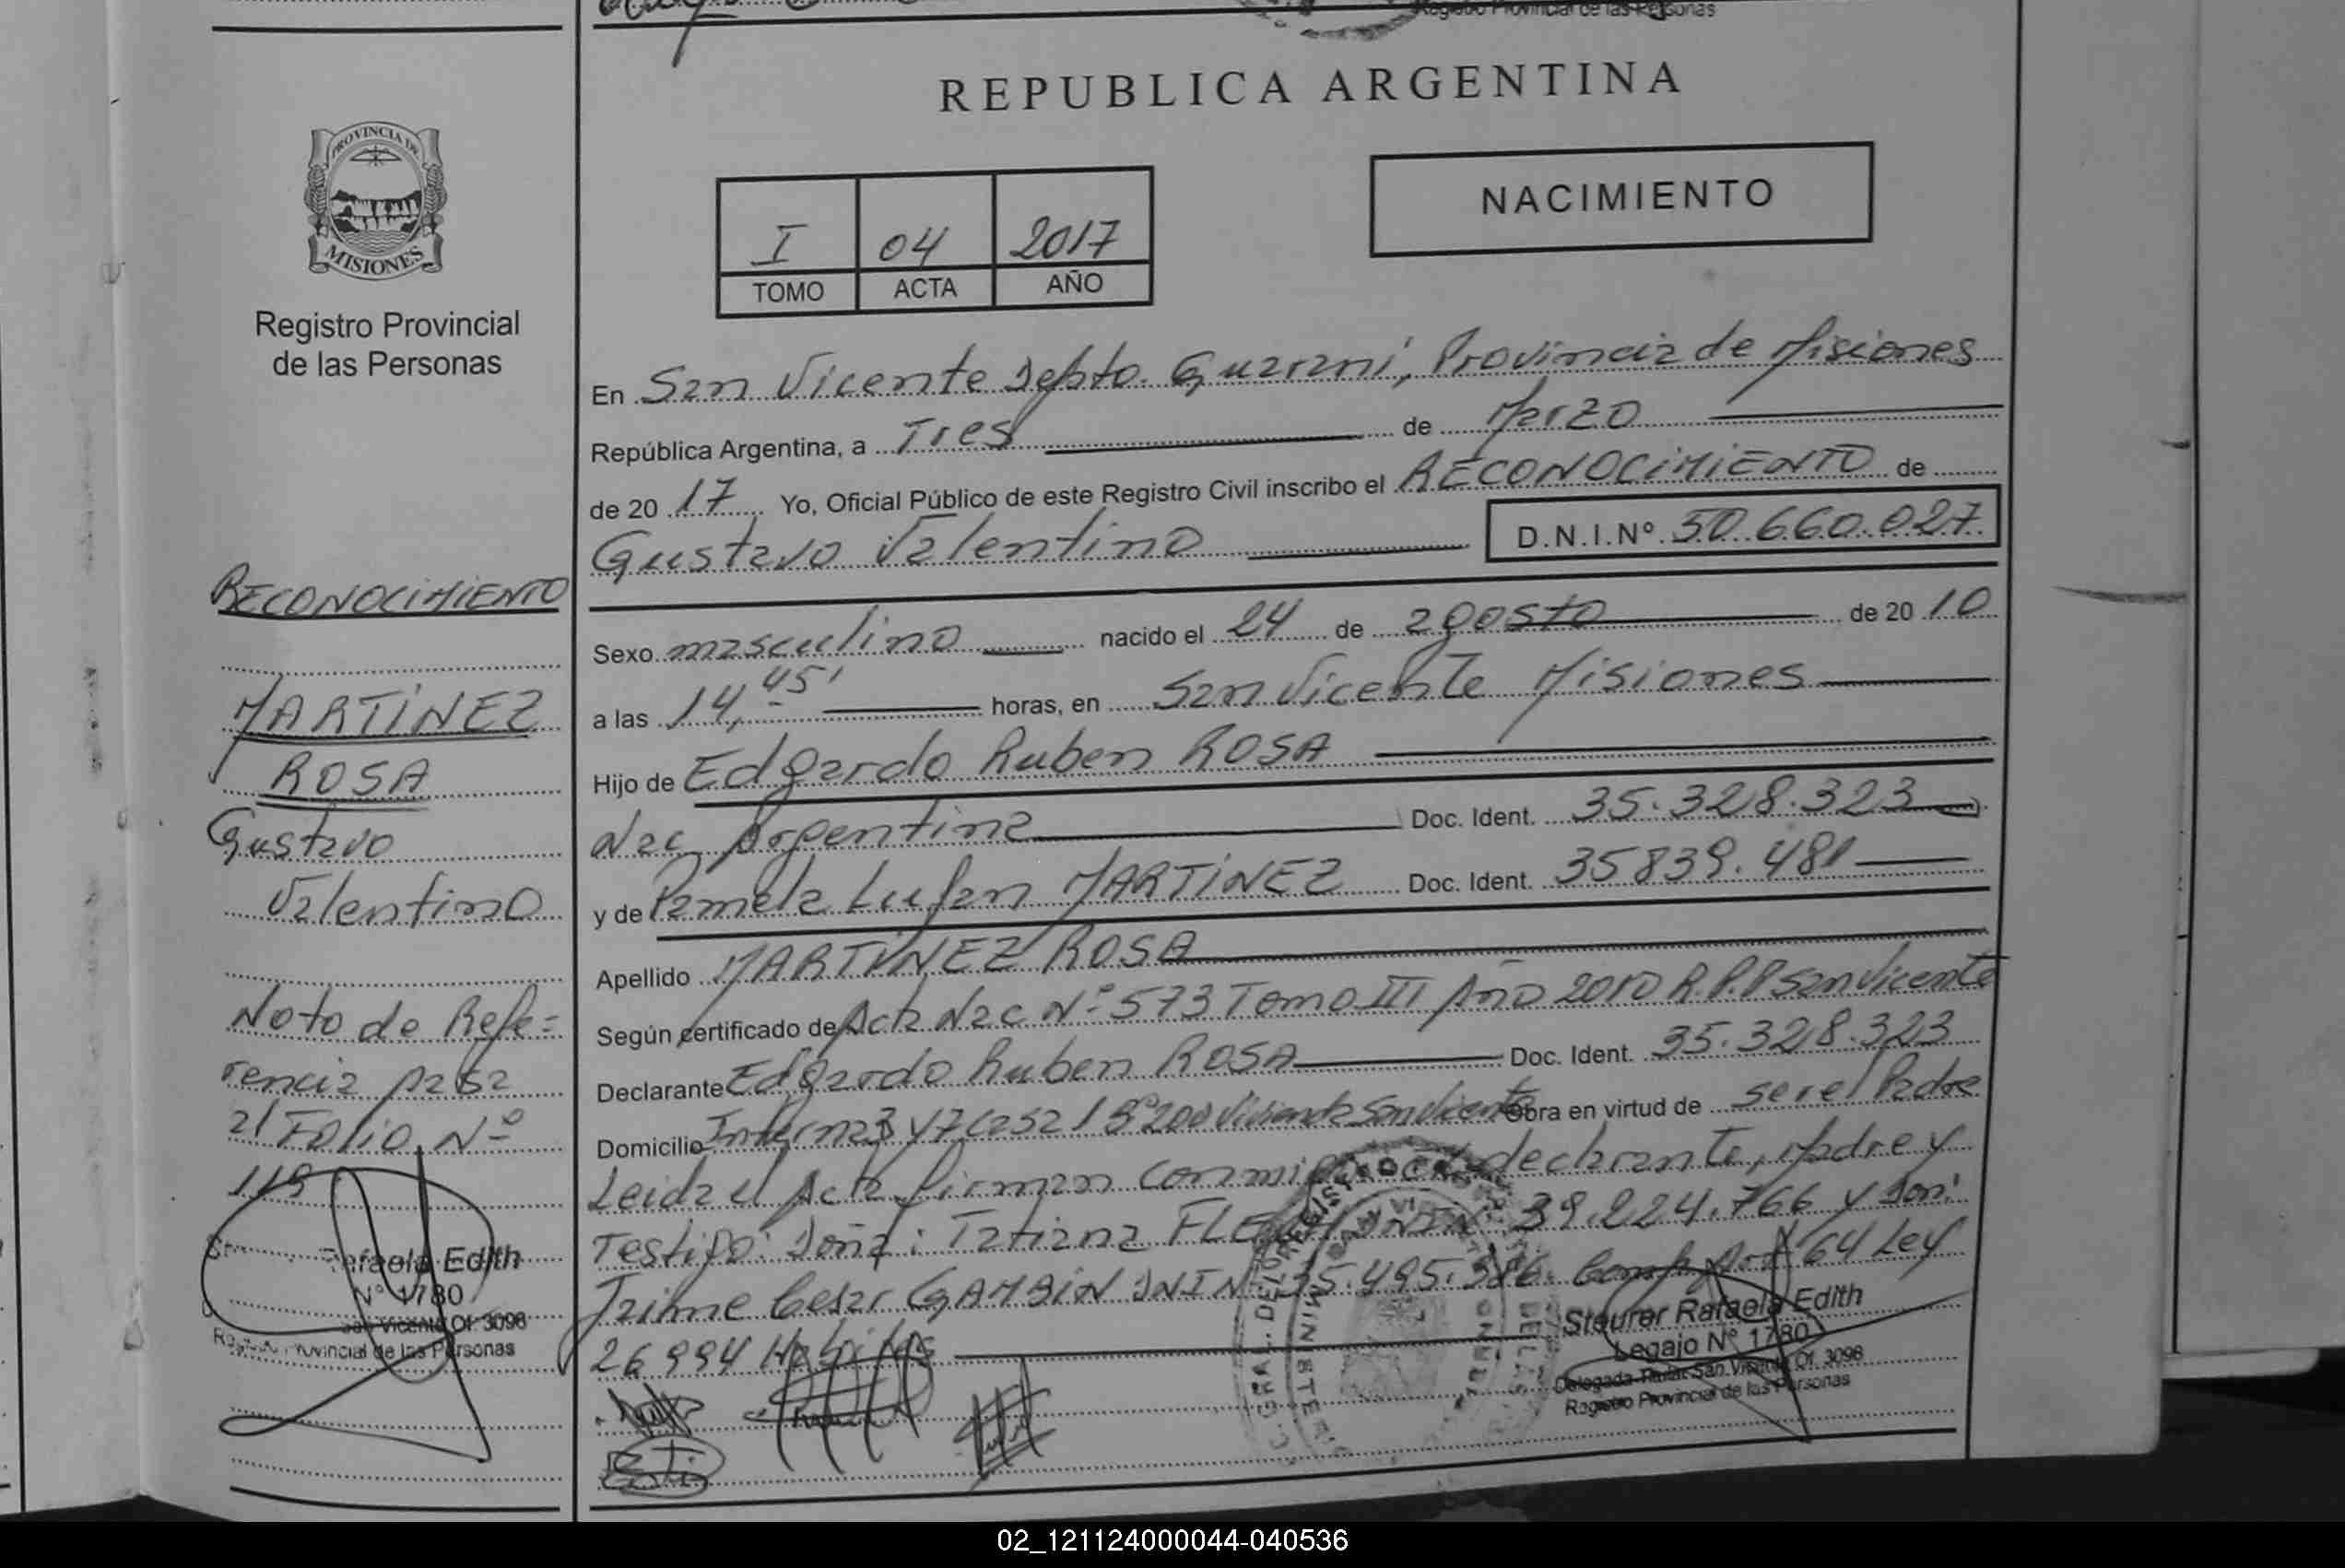 Registro Provincial de las Personas
REPUBLICA ARGENTINA
PROVINCIA DE
MISIONES
Registro Provincial
de las Personas
I 04 2017
TOMO ACTA AÑO
NACIMIENTO
En San Vicente Depto. Guaraní, Provincia de Misiones
República Argentina, a Tres de Marzo
de 2017 Yo, Oficial Público de este Registro Civil inscribo el RECONOCIMIENTO de
Gustavo Valentino D.N.I.Nº 50.660.027
Sexo masculino nacido el 24 de agosto de 2010
a las 14,45' horas, en San Vicente Misiones
Hijo de Edgardo Ruben ROSA
Nac Argentina Doc. Ident. 35.328.323
y de Pamela Lujan MARTÍNEZ Doc. Ident. 35839.481
Apellido MARTÍNEZ ROSA
Según certificado de Acta Nac Nº 573 Tomo III Año 2010 R.P.P San Vicente
Declarante Edgardo Ruben ROSA Doc. Ident. 35.328.323
Domicilio 200 Vivienda San Vicente Obra en virtud de ser el Padre
Leida el Acta firman conmigo declarante, Madre y
Testigo: Doña: Tatiana DNI Nº 39.224.766 y Don:
Jaime Cesar GAMBIN DNI Nº Art 64 Ley
26994
Steurer Rafaela Edith
Legajo Nº 1780
Delegada Titular San Vicente Of. 3098
Registro Provincial de las Personas
RECONOCIMIENTO
MARTÍNEZ
ROSA
Gustavo
Valentino
Nota de Refe=
rencia pasa
al Folio Nº
119
Rafaela Edith
Nº 1780
San Vicente Of. 3098
Provincial de las Personas
02_121124000044-040536